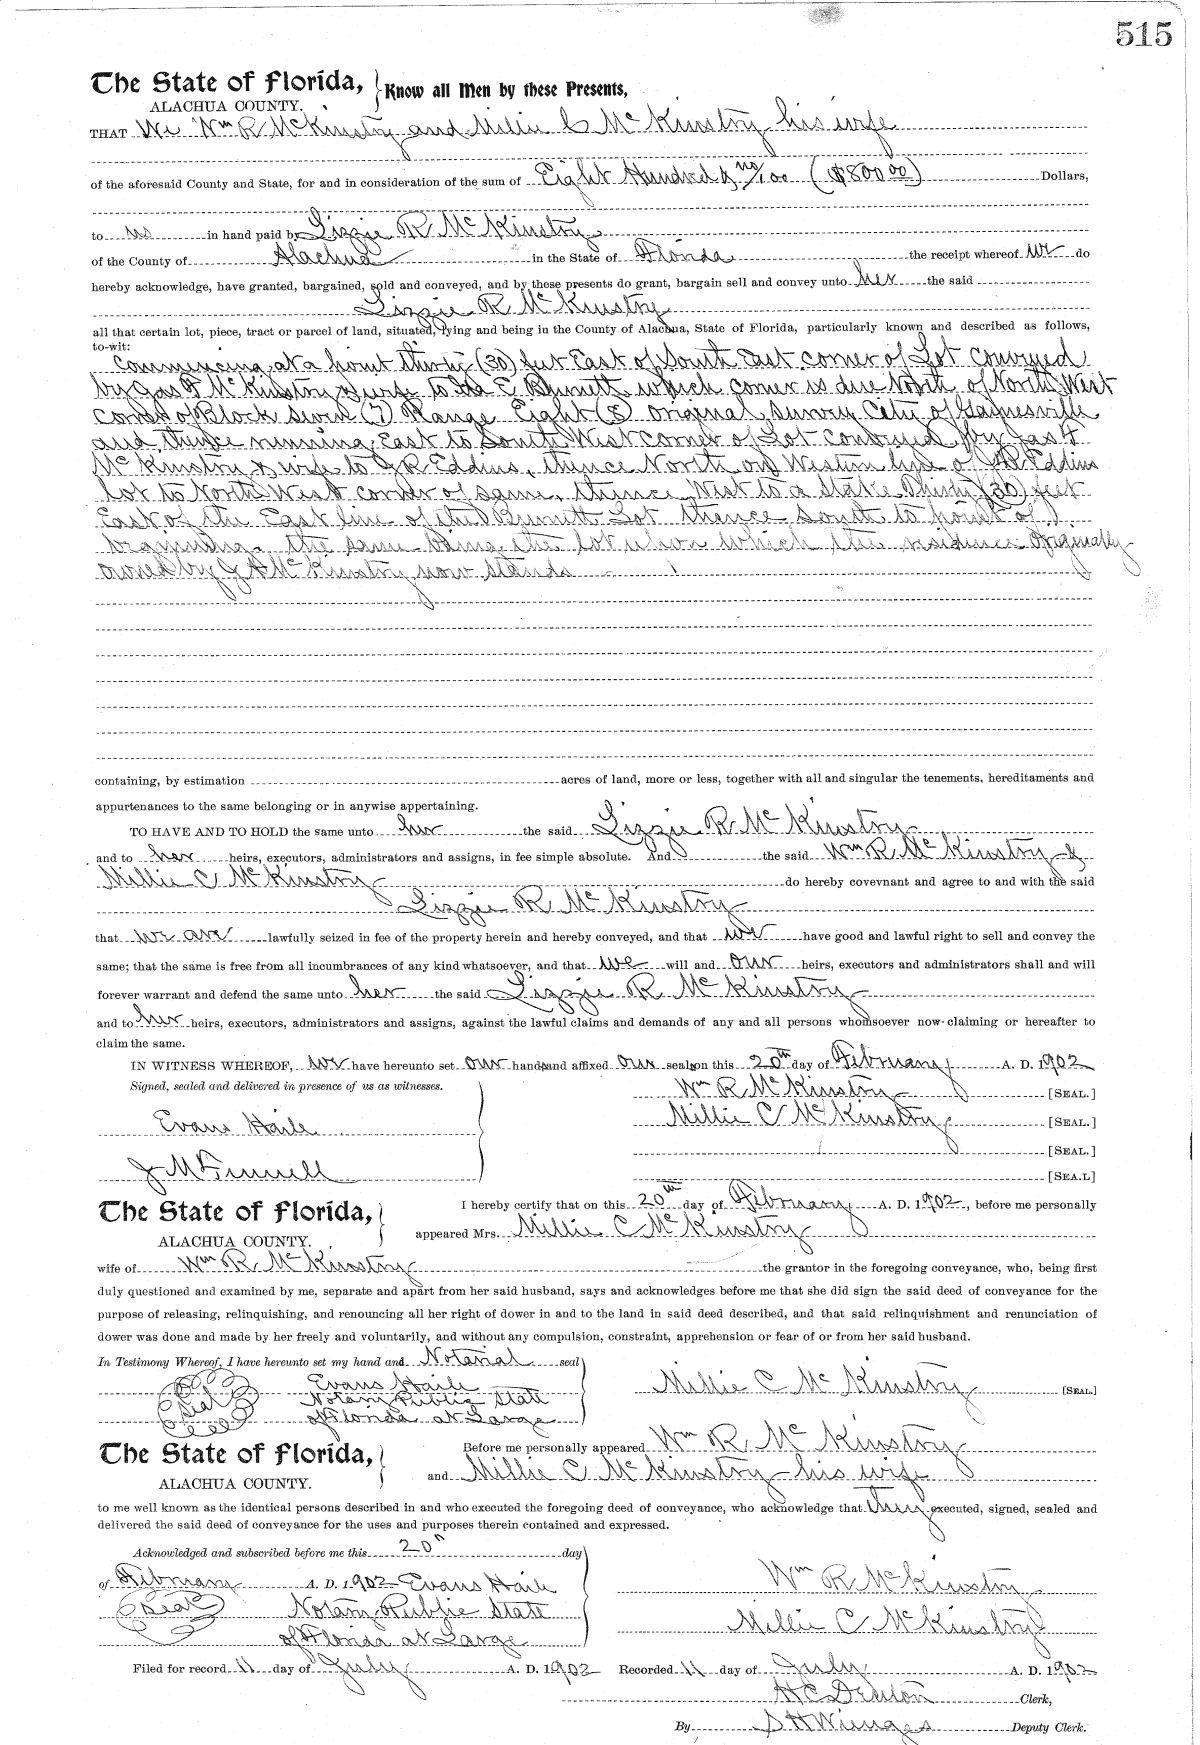 515
The State of Florida, Know all Men by these Presents,
ALACHUA COUNTY.
THAT We Wm R McKinstry and Millie C McKinstry his wife
of the aforesaid County and State, for and in consideration of the sum of Eight Hundred & no/100 ($800 00) Dollars,
to us in hand paid by Lizzie R McKinstry
of the County of Alachua in the State of Florida the receipt whereof we do
hereby acknowledge, have granted, bargained, sold and conveyed, and by these presents do grant, bargain sell and convey unto her the said
Lizzie R McKinstry
all that certain lot, piece, tract or parcel of land, situated, lying and being in the County of Alachua, State of Florida, particularly known and described as follows,
to-wit:
Commencing at a point thirty (30) feet East of South East corner of Lot conveyed
by Jas F McKinstry & wife to E Burnett which corner is due North of North West
corner of Block seven (7) Range Eight (8) original survey City of Gainesville
and thence running East to South West corner of Lot conveyed by Jas F
McKinstry & wife to J R Eddins, thence North on Western line of J R Eddins
lot to North West corner of same, thence West to a stake Thirty (30) feet
East of the East line of the Burnett Lot thence South to point of
beginning. the same being the lot upon which the residence originally
owned by J F McKinstry now stands
containing, by estimation acres of land, more or less, together with all and singular the tenements, hereditaments and
appurtenances to the same belonging or in anywise appertaining.
TO HAVE AND TO HOLD the same unto her the said Lizzie R McKinstry
and to her heirs, executors, administrators and assigns, in fee simple absolute. And the said Wm R McKinstry &
Millie C McKinstry do hereby covevnant and agree to and with the said
Lizzie R McKinstry
that we are lawfully seized in fee of the property herein and hereby conveyed, and that we have good and lawful right to sell and convey the
same; that the same is free from all incumbrances of any kind whatsoever, and that we will and our heirs, executors and administrators shall and will
forever warrant and defend the same unto her the said Lizzie R McKinstry
and to her heirs, executors, administrators and assigns, against the lawful claims and demands of any and all persons whomsoever now claiming or hereafter to
claim the same.
IN WITNESS WHEREOF, we have hereunto set our hands and affixed our seals on this 20th day of February A. D. 1902
Signed, sealed and delivered in presence of us as witnesses. Wm R McKinstry [SEAL.]
Evans Haile Millie C McKinstry [SEAL.]
[SEAL.]
[SEA.L]
The State of Florida, I hereby certify that on this 20th day of February A. D. 1902, before me personally
ALACHUA COUNTY. appeared Mrs. Millie C McKinstry
wife of Wm R McKinstry the grantor in the foregoing conveyance, who, being first
duly questioned and examined by me, separate and apart from her said husband, says and acknowledges before me that she did sign the said deed of conveyance for the
purpose of releasing, relinquishing, and renouncing all her right of dower in and to the land in said deed described, and that said relinquishment and renunciation of
dower was done and made by her freely and voluntarily, and without any compulsion, constraint, apprehension or fear of or from her said husband.
In Testimony Whereof, I have hereunto set my hand and Notarial seal
Seal Evans Haile Millie C McKinstry [SEAL.]
Notary Public State
of Florida at Large
The State of Florida, Before me personally appeared Wm R McKinstry
ALACHUA COUNTY. and Millie C McKinstry his wife
to me well known as the identical persons described in and who executed the foregoing deed of conveyance, who acknowledge that they executed, signed, sealed and
delivered the said deed of conveyance for the uses and purposes therein contained and expressed.
Acknowledged and subscribed before me this 20" day
of February A. D. 1902 Evans Haile Wm R McKinstry
Seal Notary Public State Millie C McKinstry
of Florida at Large
Filed for record 11 day of July A. D. 1902 Recorded 11 day of July A. D. 1902
H C Denton Clerk,
By S H Wienges Deputy Clerk.